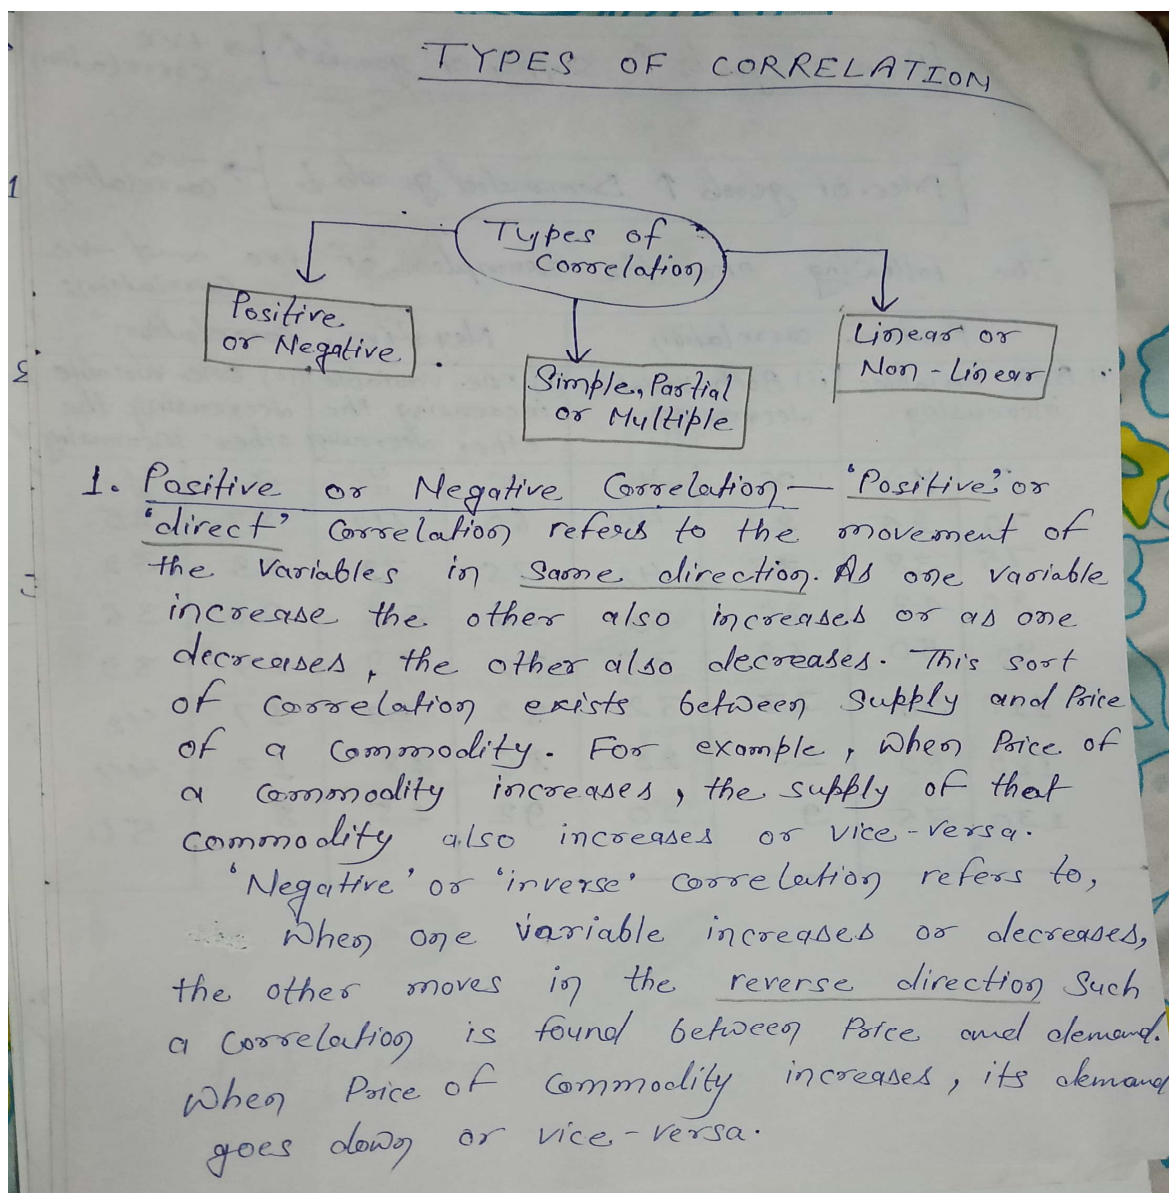 TYPES OF CORRELATION
Types of
Correlation
Positive
or Negative
Simple, Partial
or Multiple
Linear or
Non-Linear
1. Positive or Negative Correlation — 'Positive' or
'direct' Correlation refers to the movement of
the Variables in Same direction. As one variable
increase the other also increases or as one
decreases, the other also decreases. This sort
of Correlation exists between Supply and Price
of a Commodity. For example, When Price of
a Commodity increases, the supply of that
Commodity also increases or vice-versa.
'Negative' or 'inverse' correlation refers to,
When one variable increases or decreases,
the other moves in the reverse direction Such
a Correlation is found between Price and demand.
When Price of Commodity increases, its demand
goes down or vice-versa.